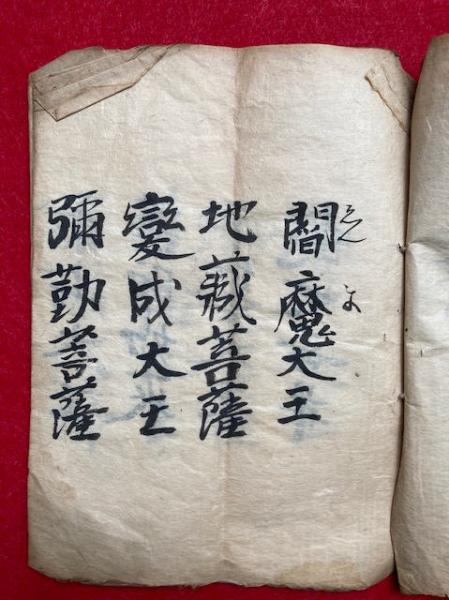 えん ま
閻魔大王
地藏菩薩
變成大王
彌勒菩薩